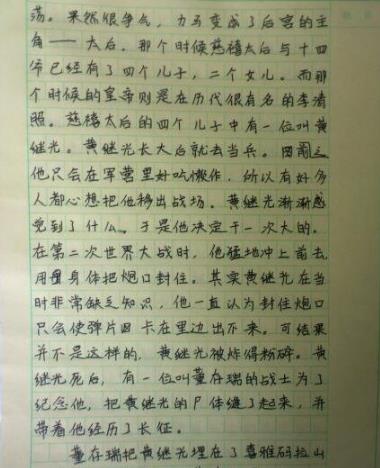 荡。果然很争气，力马变成了后宫的主
角——太后。那个时候慈禧太后与十四
爷已经有了四个儿子，二个女儿。而那
个时候的皇帝则是在历代很有名的李清
照。慈禧太后的四个儿子中有一位叫黄
继光。黄继光长大后就去当兵。因
他只会在军营里好吃懒作，所以有好多
人都心想把他移出战场。黄继光渐渐感
觉到了什么，于是他决定干一次大的。
在第二次世界大战时，他猛地冲上前去
用身体把炮口封住。其实黄继光在当
时非常缺乏知识，他一直认为封住炮口
只会使弹片卡在里边出不来。可结果
并不是这样的，黄继光被炸得粉碎。黄
继光死后，有一位叫董存瑞的战士为了
纪念他，把黄继光的尸体缝了起来，并
带着他经历了长征。
董存瑞把黄继光埋在了喜雅码拉山